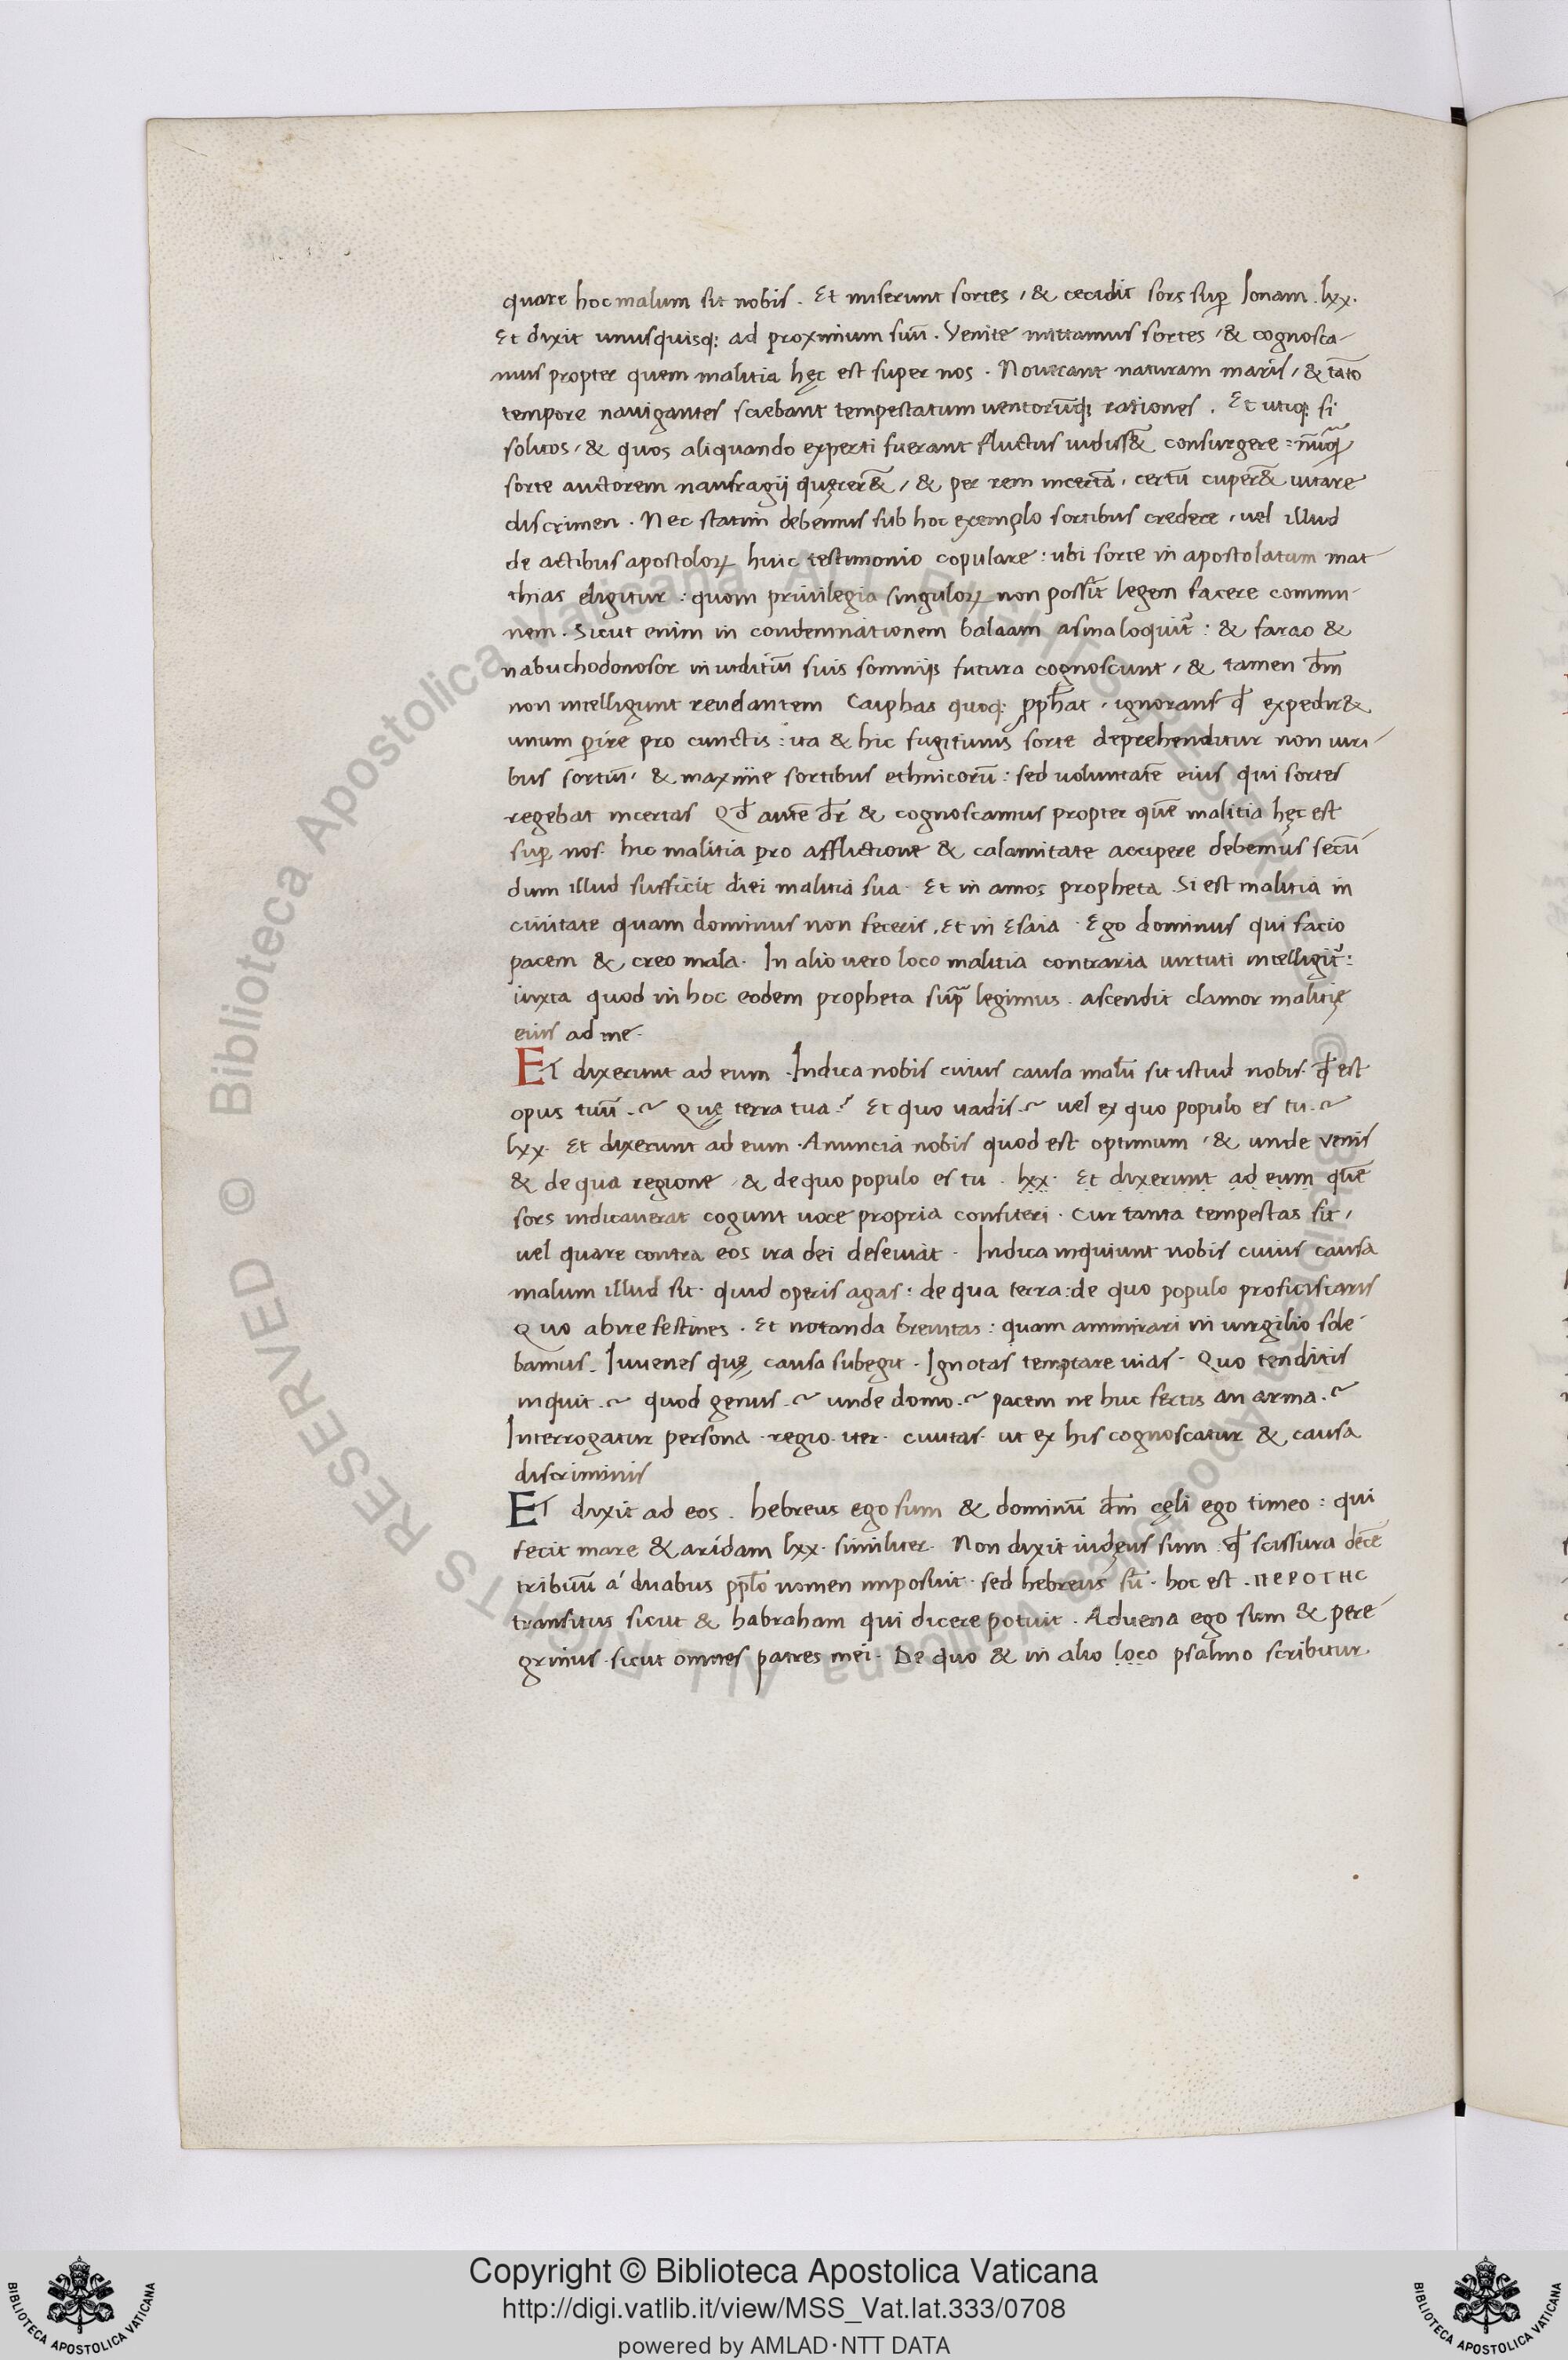 quare hoc malum sit nobis. Et miserunt sortes, & cecidit sors sup̱ Ionam. lxx.
Et dixit unusquisq; ad proximum suū. Venite mittamus sortes, & cognosca-
mus propter quem malitia hęc est super nos. Noverant naturam maris, & tāto
tempore navigantes sciebant tempestatum ventorūq; rationes. Et utiq; si
solitos, & quos aliquando experti fuerant fluctus vidiss&̄ consurgere: nūq̄
sorte auctorem naufragij quęrer&̄, & per rem incertā, certū cuper&̄ vitare
discrimen. Nec statim debemus sub hoc exemplo sortibus credere, vel illud
de actibus apostoloꝝ huic testimonio copulare: ubi sorte in apostolatum mat-
thias eligitur: quom privilegia singuloꝝ non possīt legem facere commu-
nem. Sicut enim in condemnationem balaam asina loquit᷑: & farao &
nabuchodonosor in iuditiū suis somnijs futura cognoscunt, & tamen dm̄
non intelligunt revelantem Caiphas quoq; ꝓph̄at, ignorans qđ expedir&
unum ꝑire pro cunctis: ita & hic fugitivus sorte deprehenditur non viri-
bus sortiū, & maxime sortibus ethnicorū: sed voluntatē eius qui sortes
regebat incertas Qđ autē dr̄ & cognoscamus propter quē malitia hęc est
sup̱ nos. hic malitia pro afflictione & calamitate accipere debemus secū-
dum illud sufficit diei malitia sua. Et in amos propheta. Si est malitia in
civitate quam dominus non feceris. Et in Esaia. Ego dominus qui facio
pacem & creo mala. In alio vero loco malitia contraria virtuti intelligit᷑:
iuxta quod in hoc eodem propheta supͣ legimus. ascendit clamor malitię
eius ad me.
ET dixerunt ad eum. Indica nobis cuius causa malū sit istud nobis. qđ est
opus tuū.~ Quę terra tua.~ Et quo vadis.~ vel ex quo populo es tu.~
lxx. Et dixerunt ad eum. Anuncia nobis quod est optimum, & unde venis
& de qua regione, & de quo populo es tu. lxx. Et dixerunt ad eum quē
sors indicaverat cogunt voce propria confiteri. Cur tanta tempestas sit,
vel quare contra eos ira dei deseviat. Indica inquiunt nobis cuius causa
malum illud sit. quid operis agas: de qua terra: de quo populo proficiscaris
Quo abire festines. Et notanda brevitas: quam ammirari in virgilio sole-
bamus. Iuvenes quę causa subegit. Ignotas temptare vias. Quo tenditis
inquit.~ quod genus.~ unde domo.~ pacem ne huc fertis an arma.~
Interrogatur persona. regio. iter. civitas. ut ex his cognoscatur & causa
discriminis
ET dixit ad eos. hebreus ego sum & dominū dm̄ cęli ego timeo: qui
fecit mare & aridam lxx. similiter. Non dixit iudęus sum. qđ scissura decē
tribuū a duabus pp̄lo nomen imposuit. sed hebreus sū. hoc est. ΠΕΡΟΤΗC
transitus sicut & habraham qui dicere potuit. Advena ego sum & pere-
grinus. sicut omnes patres mei. De quo & in alio loco psalmo scribitur
Copyright © Biblioteca Apostolica Vaticana
http://digi.vatlib.it/view/MSS_Vat.lat.333/0708
powered by AMLAD·NTT DATA